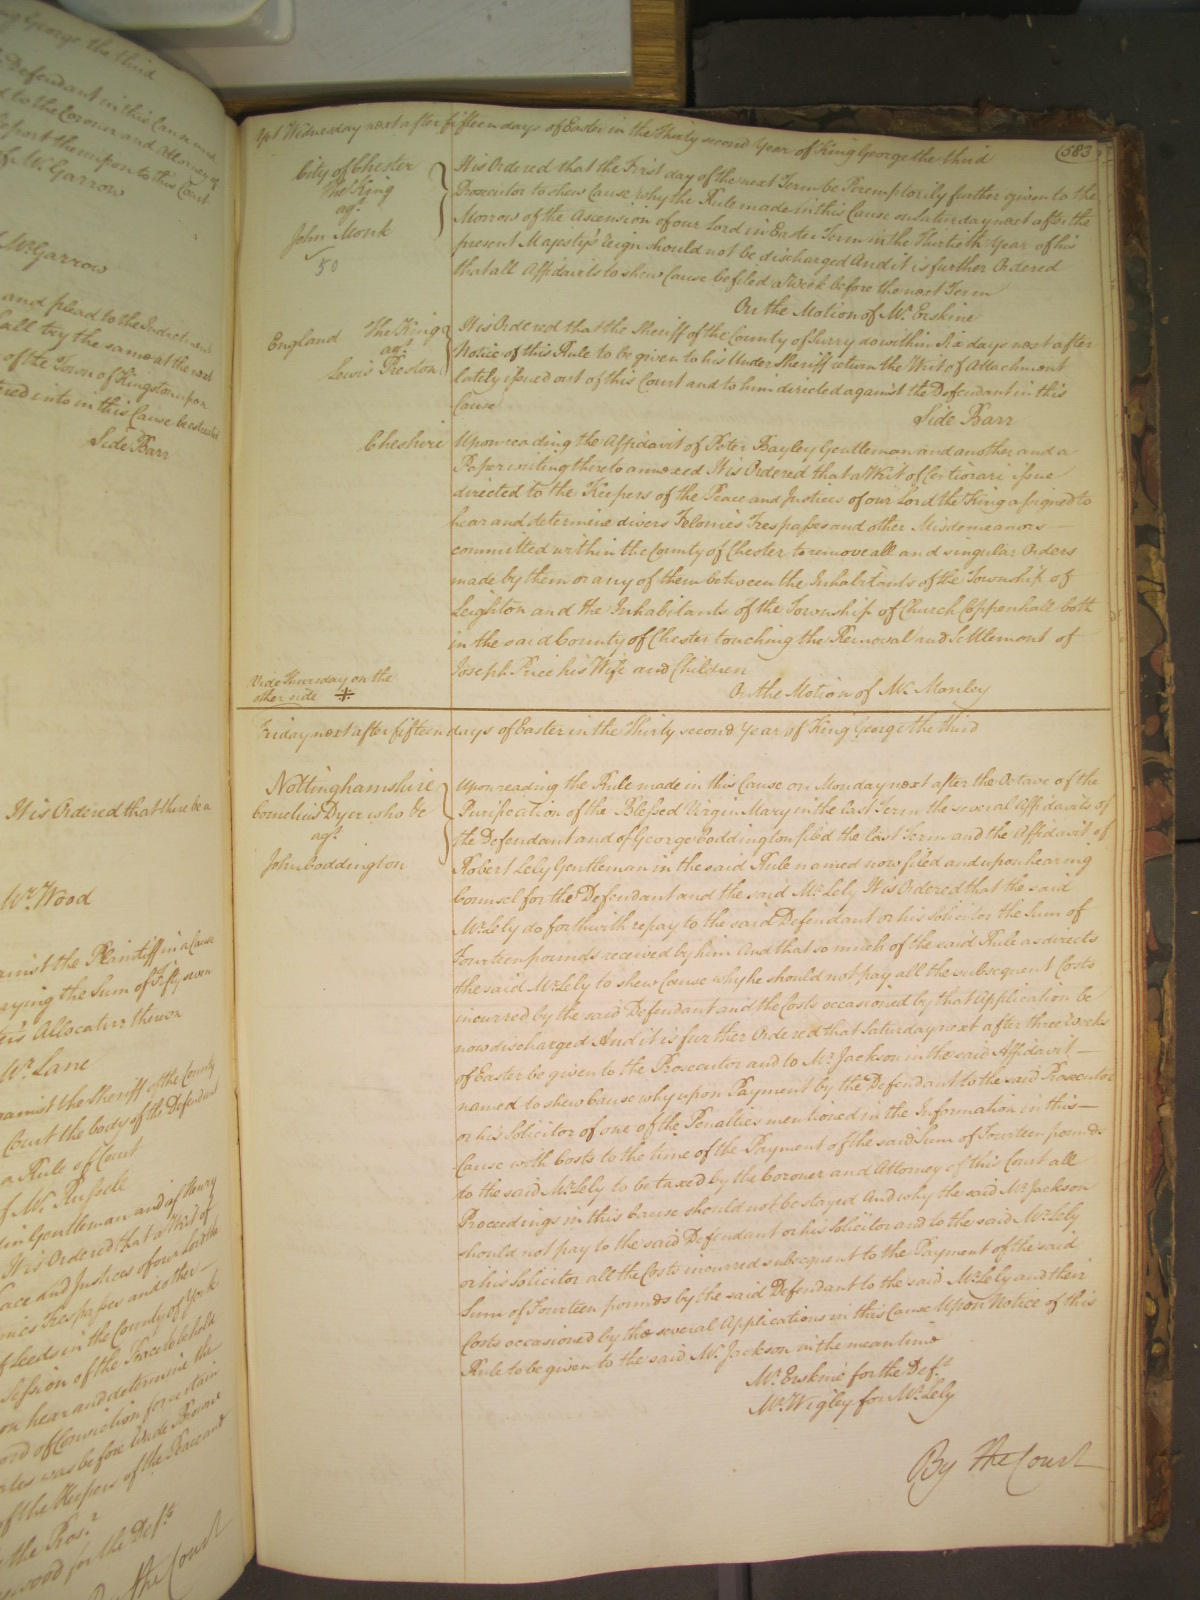 ng George the third
Defendant in this Cause and
d to the Coroner and Attorney of
Report thereupon to this Court
of Mr. Garrow
Mr. Garrow
and plead to the Indictment
shall try the same at the next
of the Town of Kingston upon
ered into in this Cause be estreated
Side Barr
It is Ordered that there be a
Mr. Wood
against the Plaintiff in a Cause
paying the Sum of Fifty seven
Allocatur thereon
Mr. Lane
against the Sheriff of the County
Court the body of the Defendant
a Rule of Court
of Mr. Russell
Gentleman and of Henry
It is Ordered that a Writ of
Peace and Justices of our Lord the
Trespasses and other
of Leeds in the County of York
Session of the Peace to be held
hear and determine the
Record of Conviction for certain
was before made
of the Keepers of the Peace and
the Pros.r
wood for the Def.ts
By the Court
Yet Wednesday next after fifteen days of Easter in the Thirty second Year of King George the third
(583
City of Chester
The King
ag.t
John Monk
50
It is Ordered that the First day of the next Term be Peremptorily further given to the
Prosecutor to shew Cause why the Rule made in this Cause on Saturday next after the
Morrow of the Ascension of our Lord in Easter Term in the Thirtieth Year of his
present Majesty's reign should not be discharged And it is further Ordered
that all Affidavits to shew Cause be filed a Week before the next Term
On the Motion of Mr. Erskine
England The King
ag.t
Lewis Preston
It is Ordered that the Sheriff of the County of Surry do within Six days next after
Notice of this Rule to be given to his Under Sheriff return the Writ of Attachment
lately issued out of this Court and to him directed against the Defendant in this
Cause
Side Barr
Cheshire
Upon reading the Affidavit of Peter Bayley Gentleman and another and a
Paper writing thereto annexed It is Ordered that a Writ of Certiorari issue
directed to the Keepers of the Peace and Justices of our Lord the King assigned to
hear and determine divers Felonies Trespasses and other Misdemeanors
committed within the County of Chester to remove all and singular Orders
made by them or any of them between the Inhabitants of the Township of
Leighton and the Inhabitants of the Township of Church Coppenhall both
in the said County of Chester touching the Removal and Settlement of
Joseph Price his Wife and Children
On the Motion of Mr. Manley
Vide Thursday on the
other side ⁜
Friday next after fifteen days of Easter in the Thirty second Year of King George the Third
Nottinghamshire
Cornelius Dyer who &c
ag.t
John Coddington
Upon reading the Rule made in this Cause on Monday next after the Octave of the
Purification of the Blessed Virgin Mary in the last Term the several Affidavits of
the Defendant and of George Coddington filed the last Term and the Affidavit of
Robert Lely Gentleman in the said Rule named now filed and upon hearing
Counsel for the Defendant and the said Mr. Lely It is Ordered that the said
Mr. Lely do forthwith repay to the said Defendant or his Solicitor the Sum of
Fourteen pounds received by him And that so much of the said Rule as directs
the said Mr. Lely to shew Cause why he should not pay all the subsequent Costs
incurred by the said Defendant and the Costs occasioned by that Application be
now discharged And it is further Ordered that Saturday next after three Weeks
of Easter be given to the Prosecutor and to Mr. Jackson in the said Affidavit
named to shew Cause why upon Payment by the Defendant to the said Prosecutor
or his Solicitor of one of the Penalties mentioned in the Information in this
Cause with Costs to the time of the Payment of the said Sum of Fourteen pounds
to the said Mr. Lely to be taxed by the Coroner and Attorney of this Court all
Proceedings in this Cause should not be stayed And why the said Mr. Jackson
should not pay to the said Defendant or his Solicitor and to the said Mr. Lely
or his Solicitor all the Costs incurred subsequent to the Payment of the said
Sum of Fourteen pounds by the said Defendant to the said Mr. Lely and their
Costs occasioned by the several Applications in this Cause Upon Notice of this
Rule to be given to the said Mr. Jackson in the mean time
Mr. Erskine for the Def.t
Mr. Wigley for Mr. Lely
By the Court